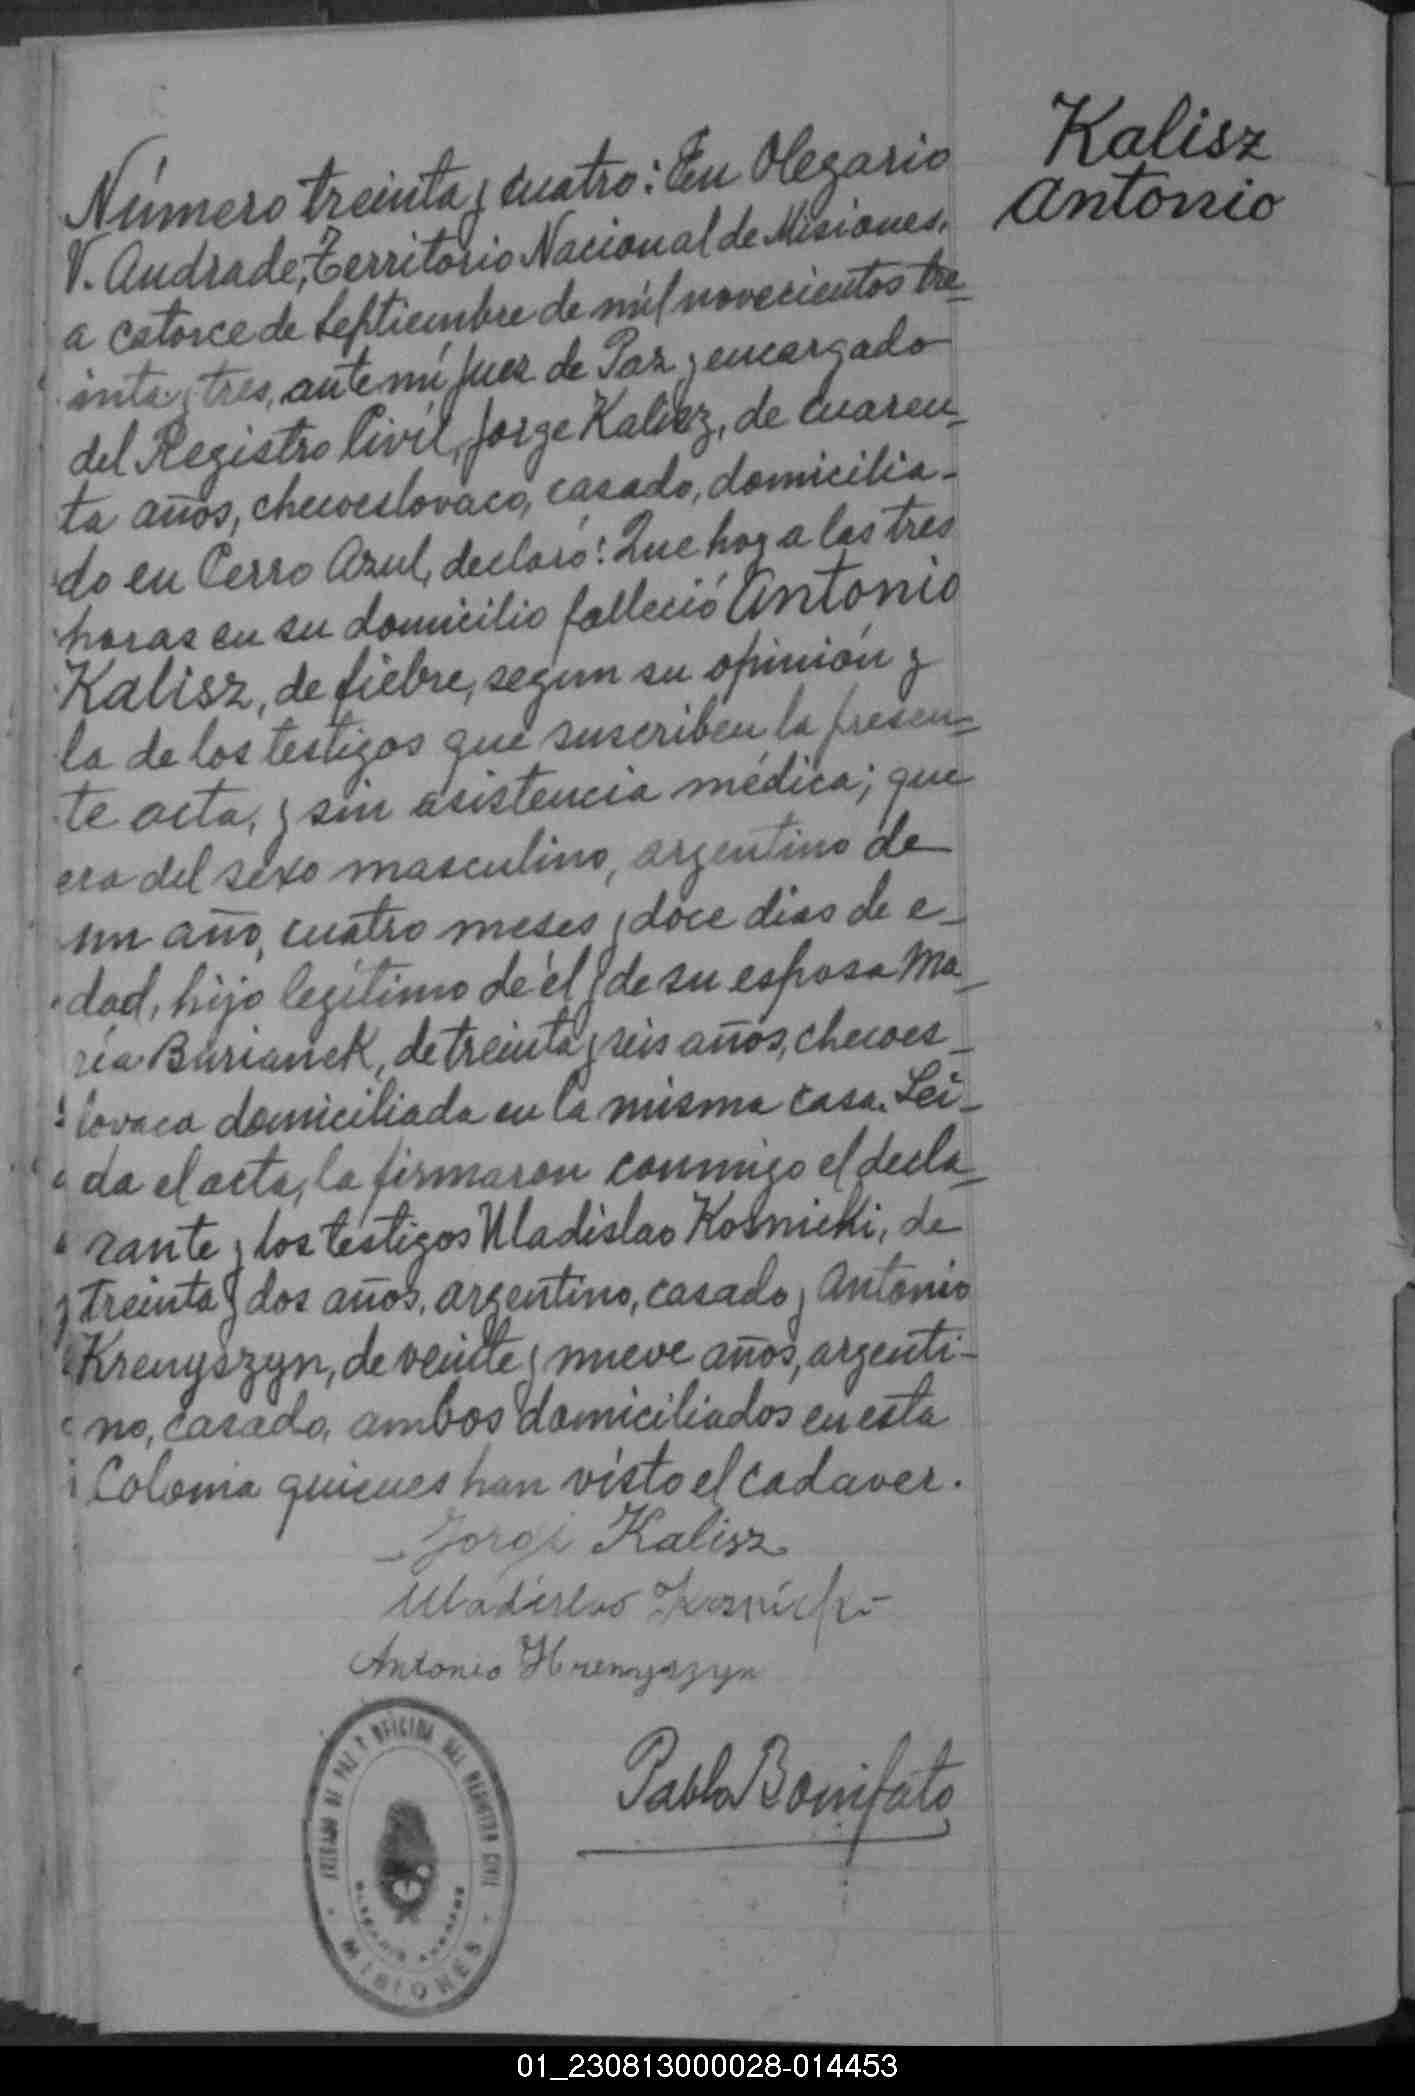 Kalisz
Antonio
Número treinta y cuatro: En Olegario
V. Andrade, Territorio Nacional de Misiones,
a catorce de Septiembre de mil novecientos tre-
inta y tres, ante mí Juez de Paz y encargado
del Registro Civil, Jorge Kalisz, de cuaren-
ta años, checoeslovaco, casado, domicilia-
do en Cerro Azul, declaró: Que hoy a las tres
horas en su domicilio falleció Antonio
Kalisz, de fiebre, segun su opinión y
la de los testigos que suscriben la presen-
te acta, y sin asistencia médica; que
era del sexo masculino, argentino de
un año, cuatro meses y doce dias de e-
dad, hijo legítimo de él y de su esposa Ma-
ría Burianek, de treinta y seis años, checoes-
lovaca domiciliada en la misma casa. Lei-
da el acta, la firmaron conmigo el decla-
rante y los testigos Uladislao Kosnicki, de
treinta y dos años, argentino, casado y Antonio
Krenyszyn, de veinte y nueve años, argenti-
no, casado, ambos domiciliados en esta
Colonia quienes han visto el cadaver.
Jorge Kalisz
Uladislao Kosnicki
Antonio Hrenyszyn
Pablo Bonifato
JUZGADO DE PAZ Y OFICINA DEL REGISTRO CIVIL
OLEGARIO ANDRADE
MISIONES
01_230813000028-014453